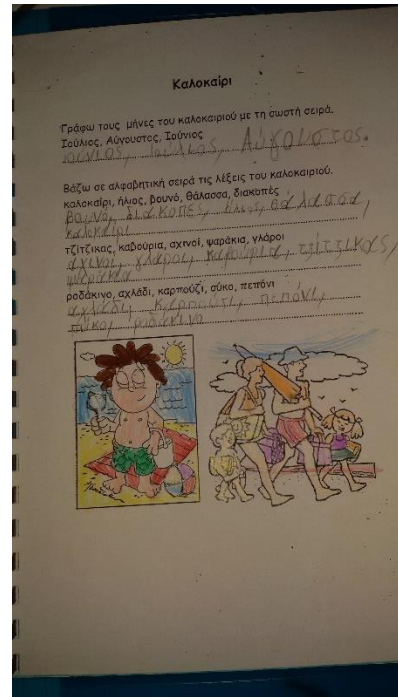 Καλοκαίρι
Γράφω τους μήνες του καλοκαιριού με τη σωστή σειρά.
Ιούλιος, Αύγουστος, Ιούνιος
Ιούλιος, Αύγουστος.
Βάζω σε αλφαβητική σειρά τις λέξεις του καλοκαιριού.
καλοκαίρι, ήλιος, βουνό, θάλασσα, διακοπές
βουνό, διακοπές, ήλιος, θάλασσα,
καλοκαίρι
τζίτζικας, καβούρια, αχινοί, ψαράκια, γλάροι
αχινοί, γλάροι, καβούρια, τζίτζικας,
ψαράκια
ροδάκινο, αχλάδι, καρπούζι, σύκο, πεπόνι
αχλάδι, καρπούζι, πεπόνι,
ροδάκινο